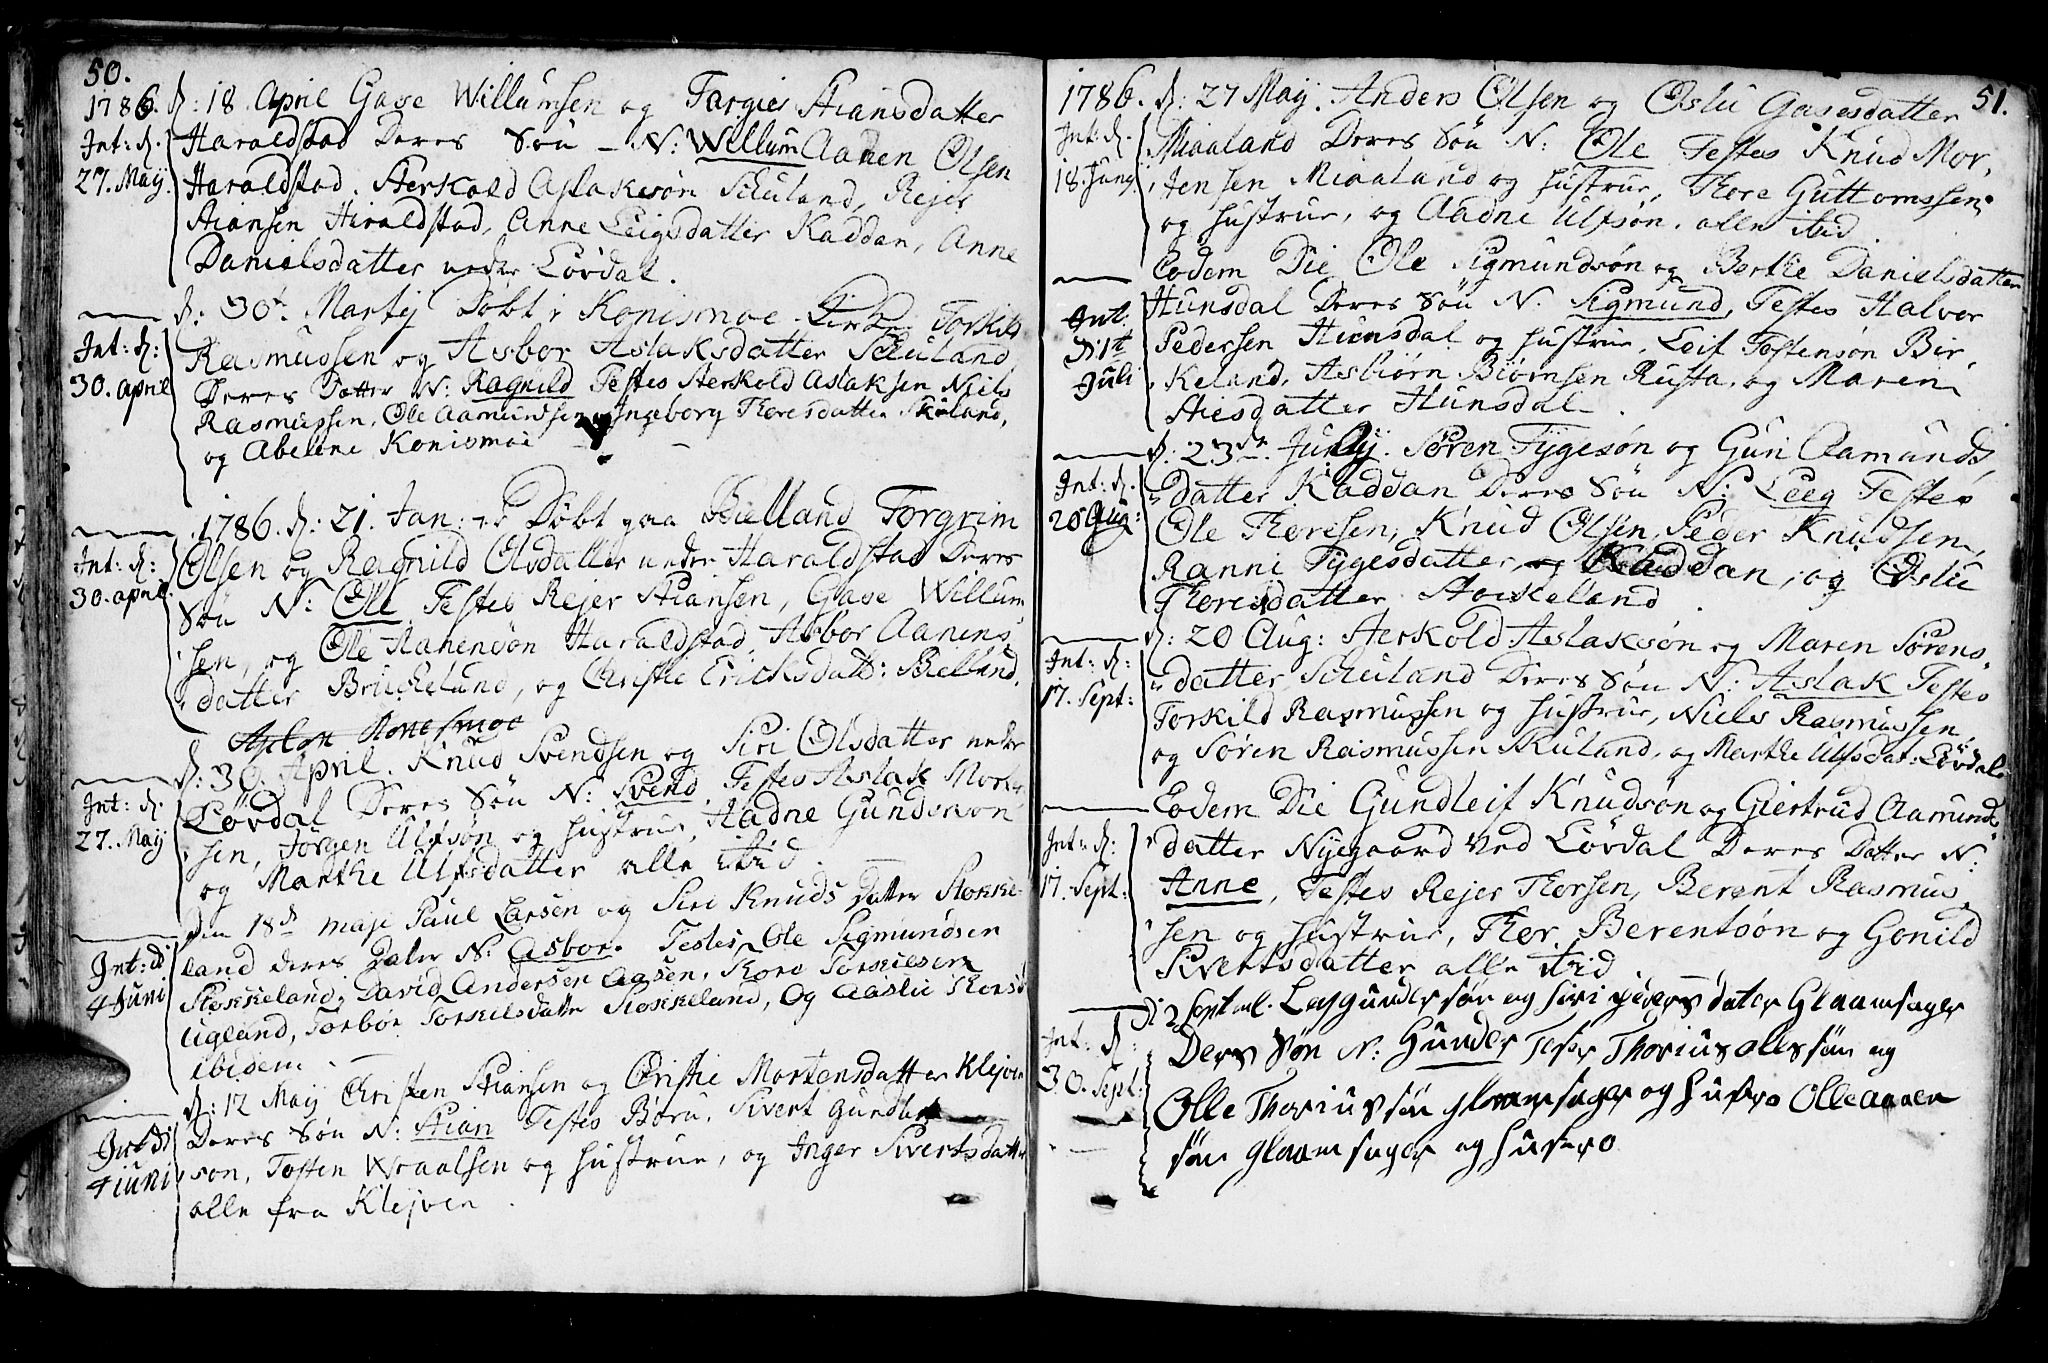 50.
1786. d: 18 April Gase Willumsen og Targier Stiansdatter
Int: d. Haraldstad Deres Søn - N: Willum Aanen Olsen
27. Maij. Haraldstad. Sterkold Aslaksøn Schuland, Rejer
Stiansen Haraldstad, Anne Leigsdatter Kaddan, Anne
Danielsdatter neder Løvdal.
d: 30te Martij Døbt i Konismoe Kirke Torkild
Int: d: Rasmussen og Asbor Aslaksdatter Schuland
30. april Deres Datter N: Ragnild Testes Sterkold Aslaksen Niels
Rasmussen, Ole Aamundsen og Ingeborg Thoresdatter Skuland,
og Abelone Konismoe
1786. d: 21. Jan: er Døbt paa Bielland Torgrim
Int: d: Olsen og Ragnild Olsdatter neder Haraldstad Deres
30. april. Søn N: Ole Testes Rejer Stiansen, Gase Willum
sen, og Ole Aanensøn Haraldstad, Asbor Aanens
datter Brickeland, og Christie Ericksdatt: Bielland.
d: 30 April. Knud Svendsen og Siri Olsdatter neder
Int: d. Løvdal Deres Søn N: Svend, Testes Aslak Morten
27. Maij sen, Jørgen Ulfsøn og hustrue, Aadne Gunderson
og Marthe Ulfsdatter alle ibid.
Den 18d maje Paul Larsen og Siri Knuds datter Stokke
Int: d land deres Dater N: Asbor. Testes Ole Sigmundsen
4 Juni Stokkeland, David Andersen Aasen, Thore Torkilsen
Ugland, Torbør Torkilsdatter Stokkeland, Og Aaslie Thorsd
ibidem.
d: 12 Maij Christen Stiansen og Christie Mortensdatter Klejven
Int: d Deres Søn N: Stian Testes Børu, Sivert Gundleif
4 iuni son, Tosten Wraalsen og hustrue, og Inger Sivertsdatter
alle fra Klejven.
51.
1786. d: 27 Maij. Anders Olsen og Oslu Gasesdatter
Int: d. Miaaland Deres Søn N: Ole Testes Knud Mor,
18. Junij, tensen Miaaland og hustrue, Thore Guttormssen
og hustrue, og Aadne Ulfsøn. alle ibid.
Eodem Die Ole Sigmundsøn og Berthe Danielsdatter
Int. Hunsdal Deres Søn N. Sigmund, Testes Halvor
d: 1te Pedersen Hunsdal og hustrue, Leif Tostensøn Bir,
Juli keland, Asbiørn Biørnsen Rusta, og Maren
Stiesdatter Hunsdal.
d: 23de Junij. Søren Tygesøn og Guri Aamunds
Int: d. datter Kaddan Deres Søn N: Leeg Testes
20 Aug: Ole Thoresen, Knud Olsen, Peder Knudsen,
Ranni Tygesdatter, Kaddan, og Oslu
Thoresdatter Stockeland.
d: 20 Aug: Sterkold Aslaksøn og Maren Sørens
Int: d: datter Schuland Deres Søn N: Aslak Testes
17. Sept: Torkild Rasmussen og hustrue, Niels Rasmussen,
og Søren Rasmussen Skuland, og Marthe Ulfsdat: Løvdal.
Eodem Die Gundleif Knudsøn og Giertrud Aamunds
Int: d: datter Nyegaard ved Løvdal Deres Datter N:
17. Sept: Anne, Testes Rejer Thorsen, Berent Rasmus
sen og hustrue, Thor Berentsøn og Gonild
Sivertsdatter alle ibid
d: 2 Septembl. Las gundersøn og siri peders dater Glaamsager
Int: d: Ders Søn N: Gunder Tester Thorius ollssøn og
30. Sept: Olle Thoriussøn glaamsager og hustro Olle aanen
søn glaamsager og hustro